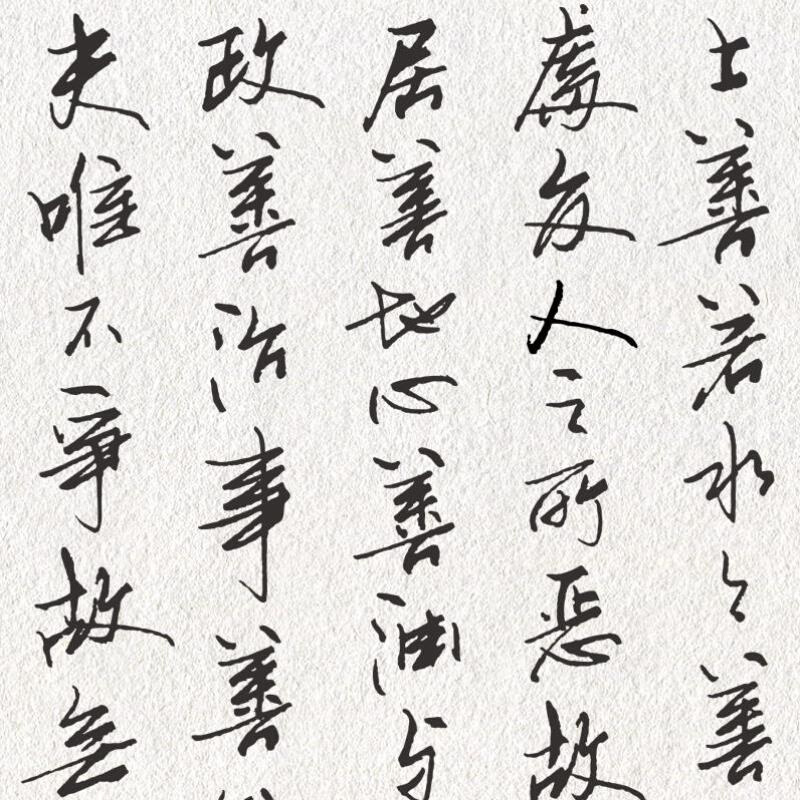 上善若水〻善
處眾人之所惡故
居善地心善渊与
政善治事善
夫唯不爭故無